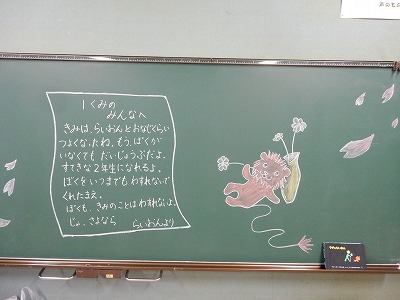 1くみの
みんなへ
きみは、らいおんとおなじぐらい
つよくなったね。もう、ぼくが
いなくても だいじょうぶだよ。
すてきな2年生になれるよ。
ぼくを いつまでも わすれないで
くれたまえ。
ぼくも、きみのことは わすれないよ。
じゃ、さよなら
らいおんより